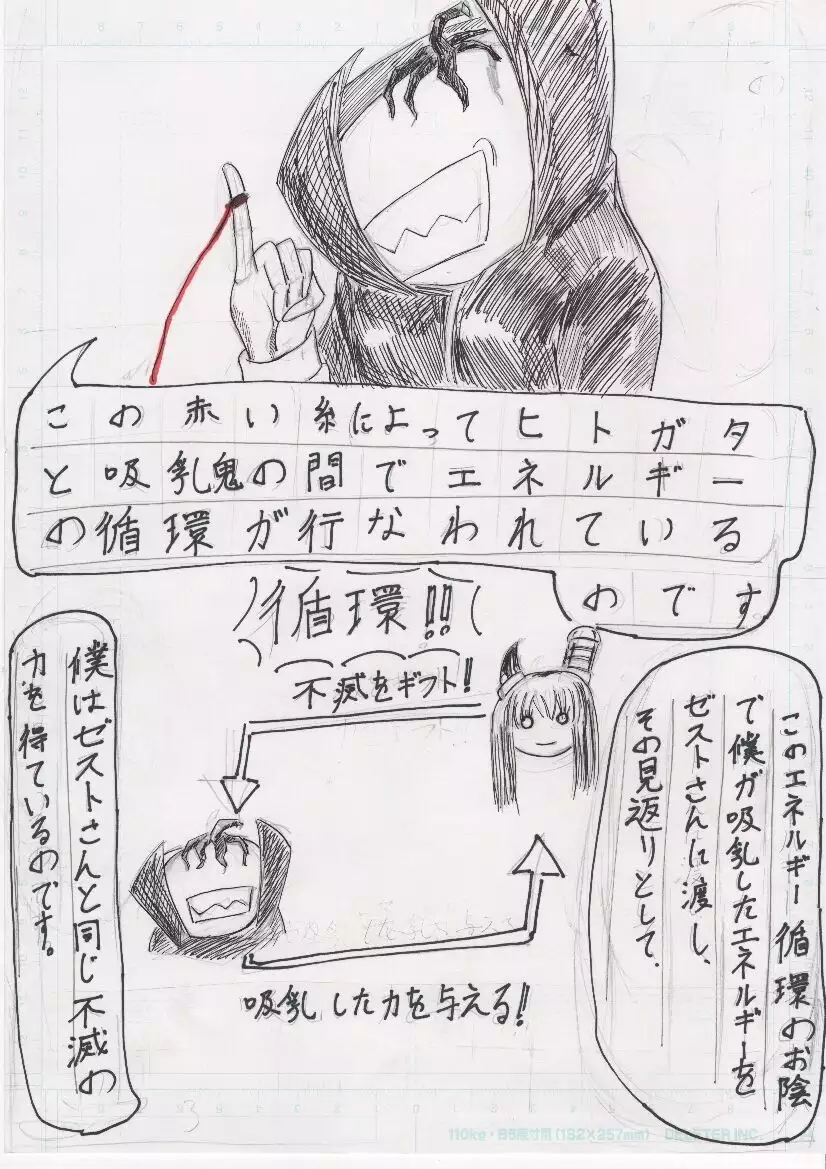 この赤い糸によってヒトガタ
と吸乳鬼の間でエネルギー
の循環が行なわれている
のです。
循環!!
不滅をギフト!
このエネルギー循環のお陰
で僕が吸乳したエネルギーを
ゼストさんに渡し、
その見返りとして、
吸乳した力を与える!!
僕はゼストさんと同じ不滅の
力を得ているのです。
110kg・B5原寸用(182×257mm)